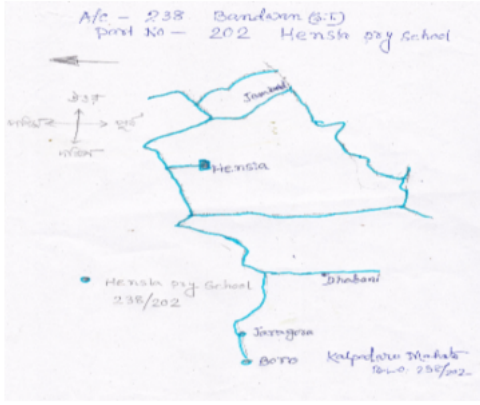 A/C - 238 Bandwan (S.T)
Part No - 202 Hensla pry School
উত্তর
পশ্চিম
পূর্ব
দক্ষিণ
Hensla
Hensla pry School
238/202
Dhabani
Jaragora
Boro
Kalpataru Mahato
B.L.O. 238/202